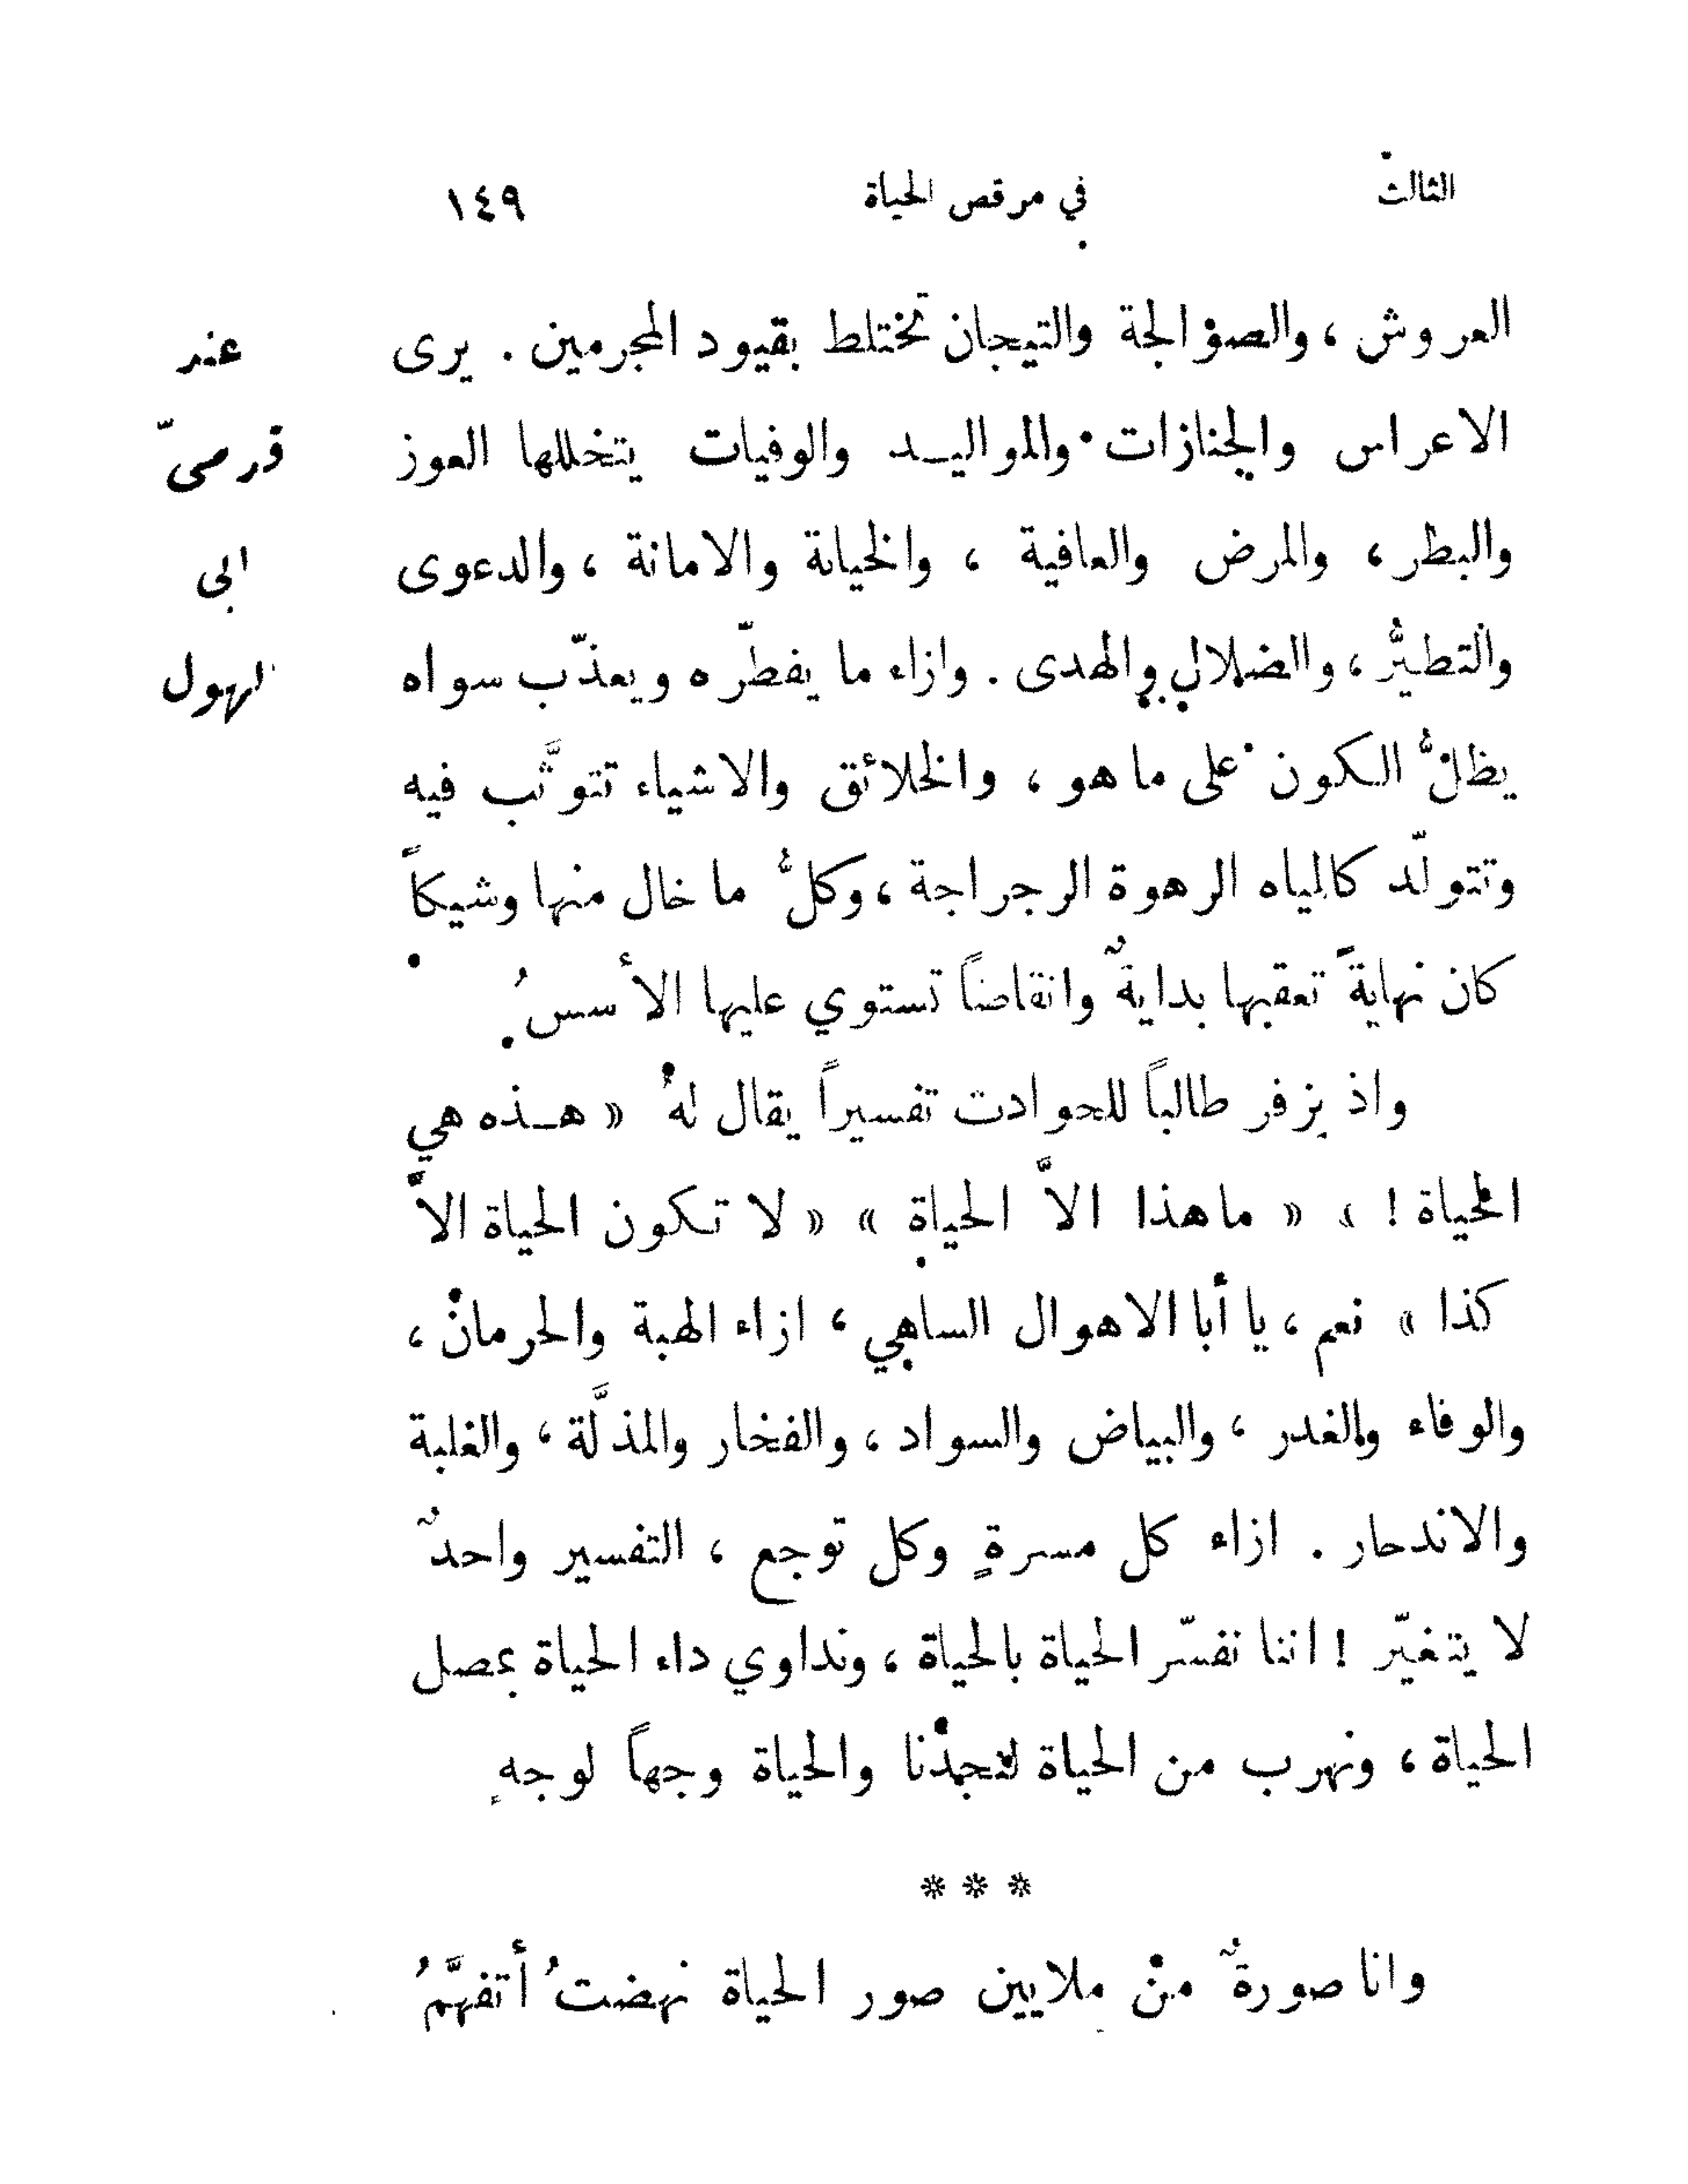 الثالث في مرقص الحياة ١٤٩
العروش ، والصوالجة والتيجان تختلط بقيود المجرمين . يرى
الاعراس والجنازات والمواليد والوفيات يتخللها العوز
والبطر ، والمرض والعافية ، والخيانة والامانة ، والدعوى
والتطيُّر ، والضلال والهدى . وازاء ما يفطّره ويعذّب سواه
يظلُّ الكون على ما هو ، والخلائق والاشياء تتوثَّب فيه
وتتولّد كالمياه الرهوة الرجراجة ، وكلُّ ما خال منها وشيكاً
كان نهايةً تعقبها بدايةٌ وانقاضاً تستوي عليها الأسسُ
واذ يزفر طالباً للحوادث تفسيراً يقال لهُ « هذه هي
الحياة ! » « ما هذا الاَّ الحياة » « لا تكون الحياة الاَّ
كذا » نعم ، يا أبا الاهوال الساهي ، ازاء الهبة والحرمان ،
والوفاء والغدر ، والبياض والسواد ، والفخار والمذلَّة ، والغلبة
والاندحار . ازاء كل مسرةٍ وكل توجع ، التفسير واحدٌ
لا يتغيّر ! اننا نفسّر الحياة بالحياة ، ونداوي داء الحياة بمصل
الحياة ، ونهرب من الحياة لتجدنا والحياة وجهاً لوجهٍ
* * *
وانا صورةٌ من ملايين صور الحياة نهضتُ أتفهَّمُ
عند
قدمىّ
ابى
الهول